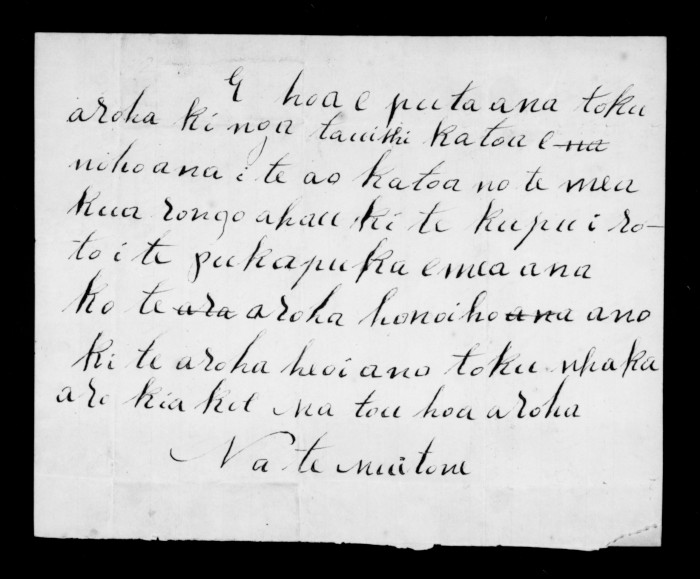 E hoa e puta ana toku
aroha ki nga tauiwi katoa e na
nohoana i te ao katoa no te mea
kua rongo ahau ki te kupu i ro-
to i te pukapuka e mea ana
ko te ara aroha honoiho ana ano
ki te aroha heoi ano toku whaka
aro kia koe Na tou hoa aroha
Na te